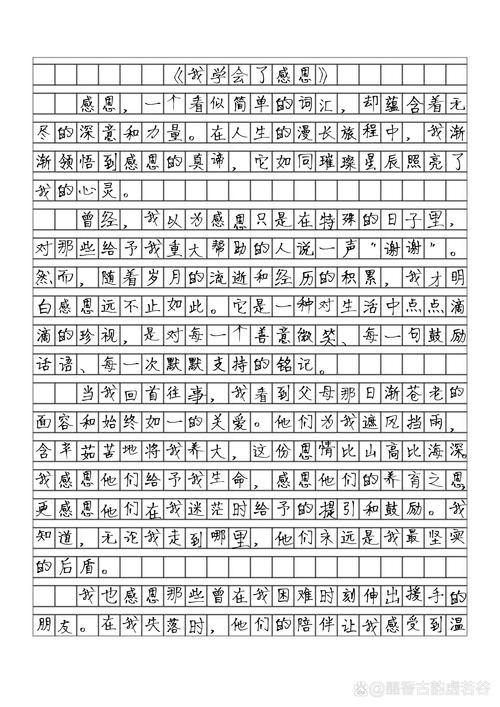 《我学会了感恩》
感恩，一个看似简单的词汇，却蕴含着无
尽的深意和力量。在人生的漫长旅程中，我渐
渐领悟到感恩的真谛，它如同璀璨星辰照亮了
我的心灵。
曾经，我以为感恩只是在特殊的日子里，
对那些给予我重大帮助的人说一声“谢谢”。
然而，随着岁月的流逝和经历的积累，我才明
白感恩远不止如此。它是一种对生活中点点滴
滴的珍视，是对每一个善意微笑、每一句鼓励
话语、每一次默默支持的铭记。
当我回首往事，我看到父母那日渐苍老的
面容和始终如一的关爱。他们为我遮风挡雨，
含辛茹苦地将我养大，这份恩情比山高比海深。
我感恩他们给予我生命，感恩他们的养育之恩，
更感恩他们在我迷茫时给予的提引和鼓励。我
知道，无论我走到哪里，他们永远是我最坚实
的后盾。
我也感恩那些曾在我困难时刻伸出援手的
朋友。在我失落时，他们的陪伴让我感受到温